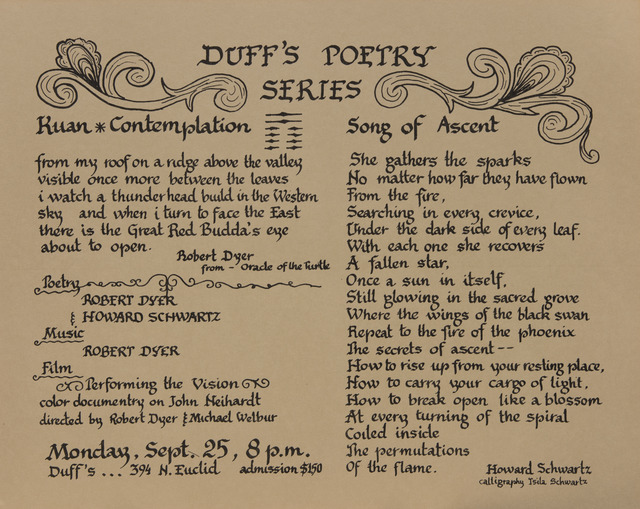 DUFF'S POETRY
SERIES
Kuan * Contemplation
from my roof on a ridge above the valley
visible once more between the leaves
i watch a thunderhead build in the Western
sky and when i turn to face the East
there is the Great Red Budda's eye
about to open.
Robert Dyer
from - Oracle of the Turtle
Poetry
ROBERT DYER
& HOWARD SCHWARTZ
Music
ROBERT DYER
Film
Performing the Vision
color documentry on John Neihardt
directed by Robert Dyer & Michael Welbur
Monday, Sept. 25, 8 p.m.
Duff's ... 394 N. Euclid admission $1.50
Song of Ascent
She gathers the sparks
No matter how far they have flown
From the fire,
Searching in every crevice,
Under the dark side of every leaf.
With each one she recovers
A fallen star,
Once a sun in itself,
Still glowing in the sacred grove
Where the wings of the black swan
Repeat to the fire of the phoenix
The secrets of ascent --
How to rise up from your resting place,
How to carry your cargo of light,
How to break open like a blossom
At every turning of the spiral
Coiled inside
The permutations
Of the flame.
Howard Schwartz
calligraphy Tsila Schwartz